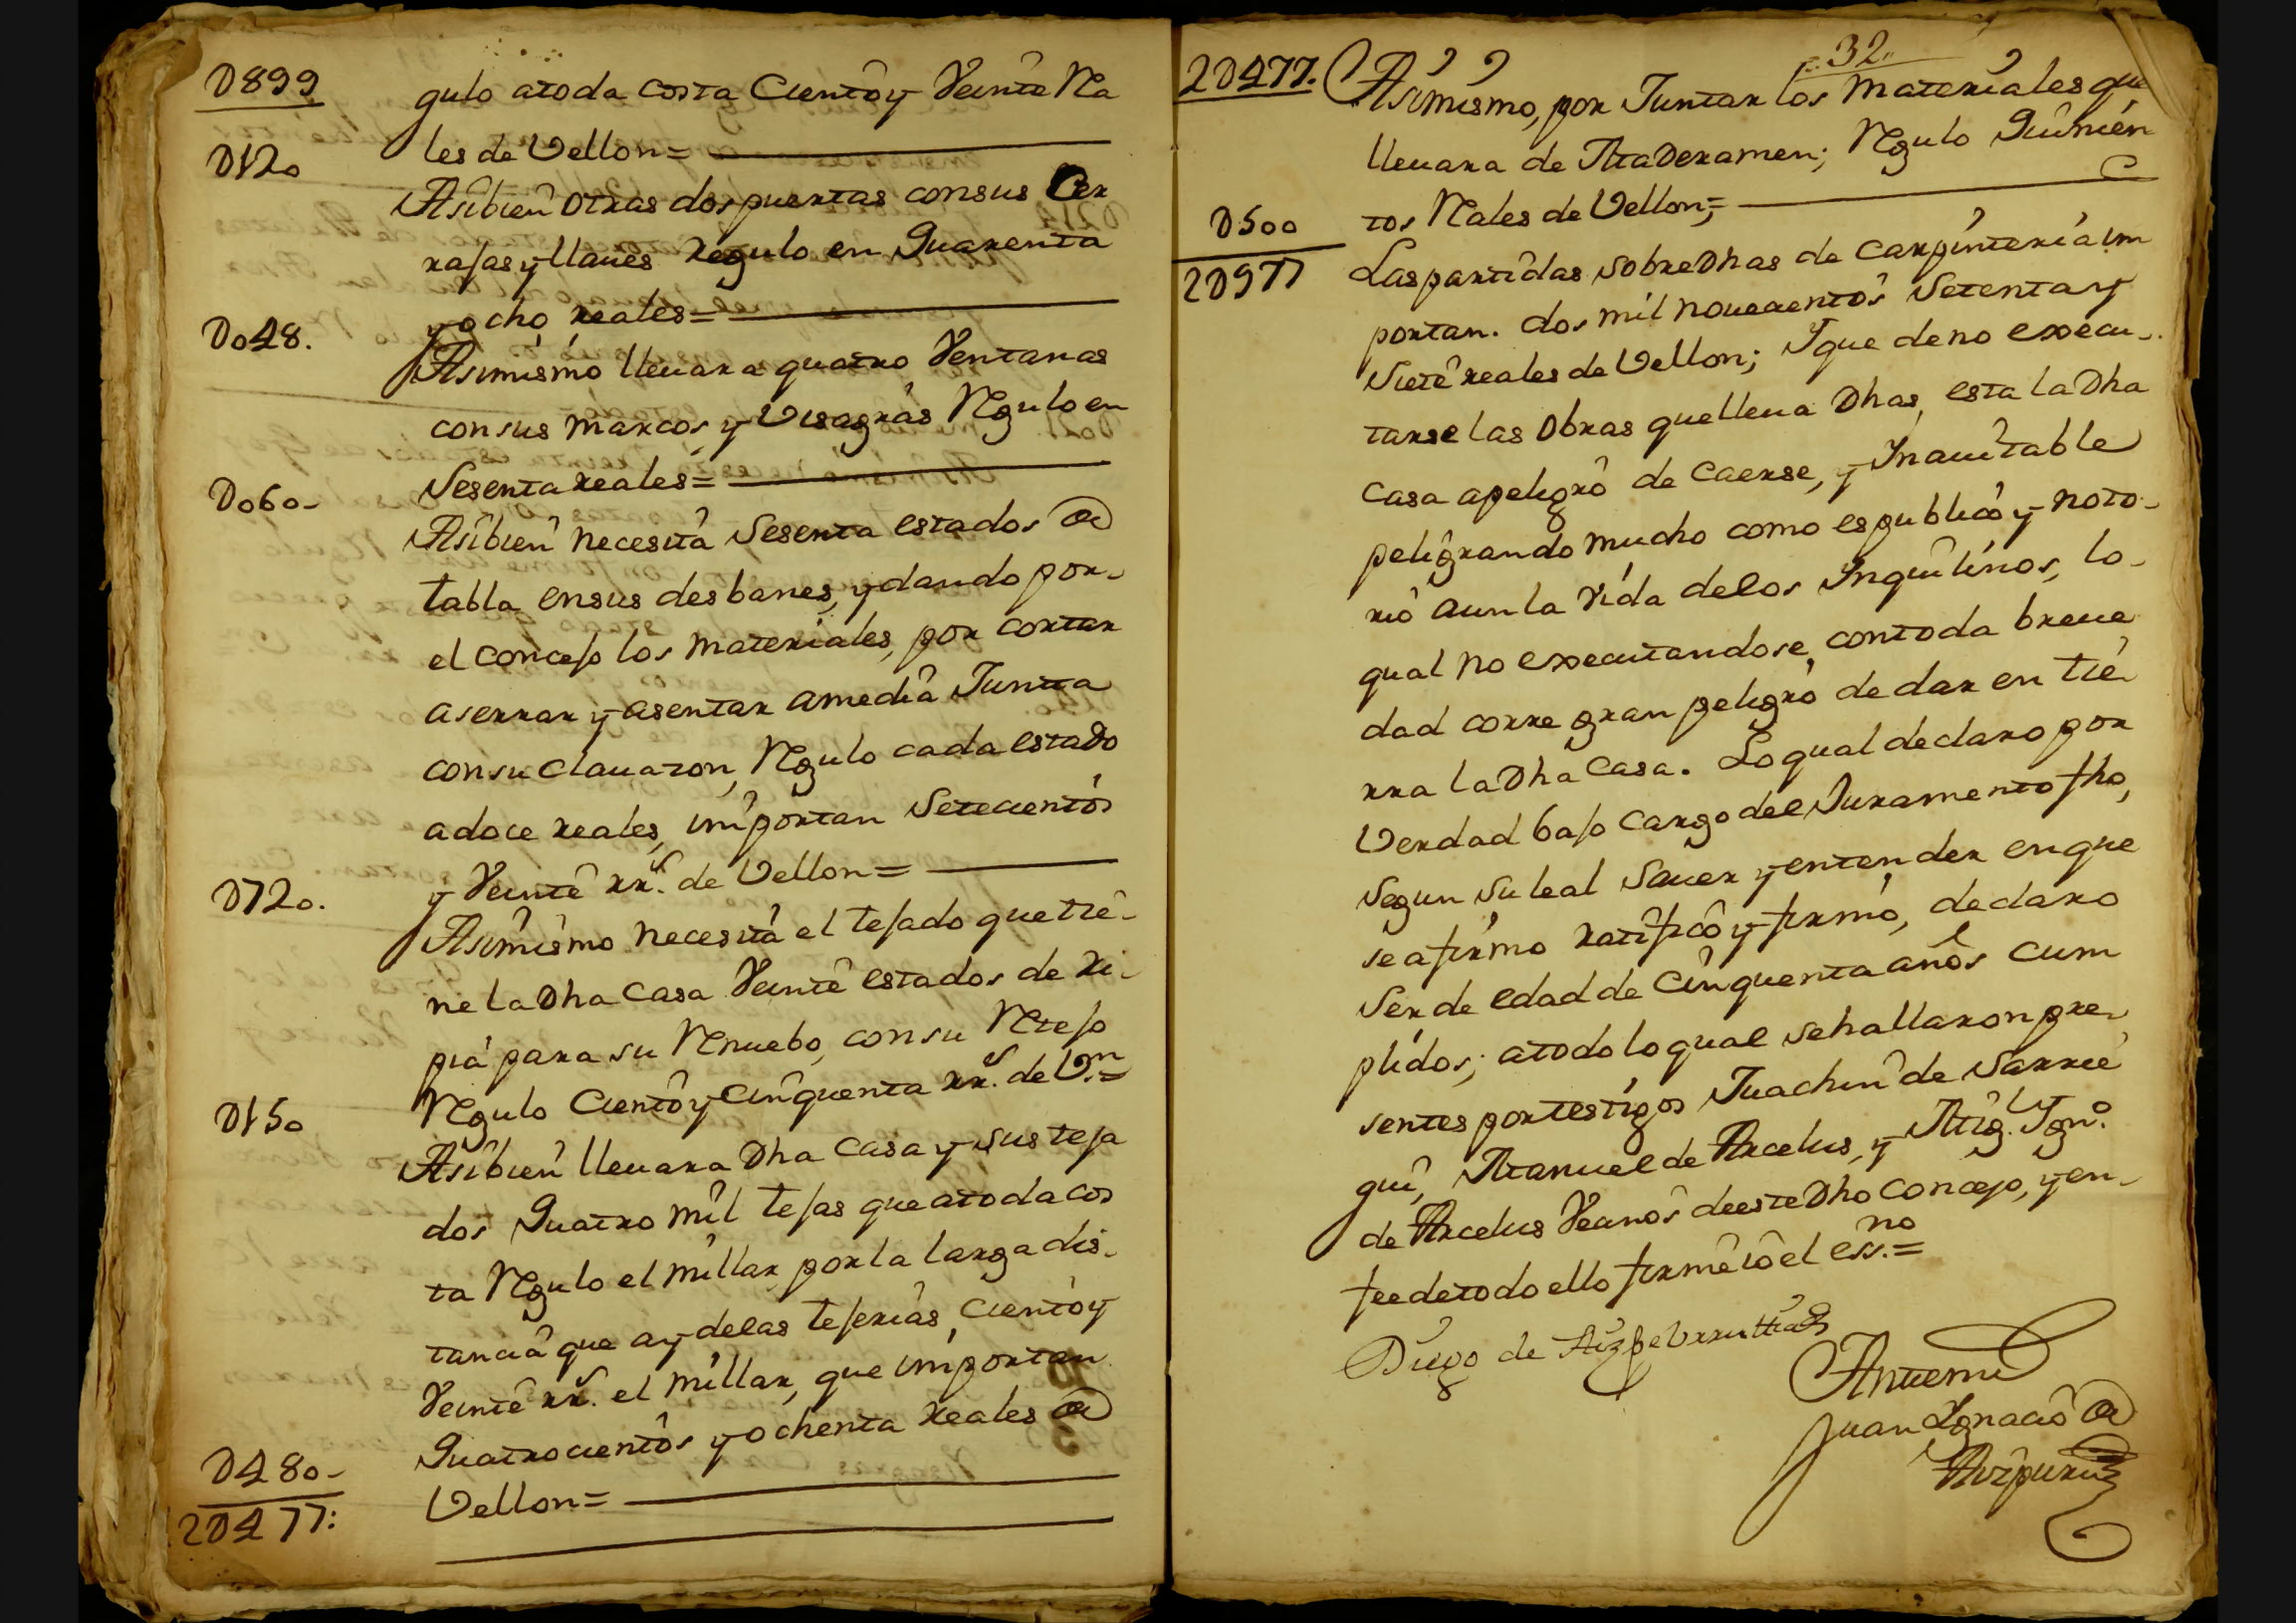 D899
gulo atoda costa Cientoy Veinte Rea
les de Vellon=
D120
Asibien otras dos puertas consus Cer
rajas y llaues regulo en Quarenta
y ocho reales=
D048.
Asimismo lleuara quatro Ventanas
consus marcos, y Visagras Regulo en
Sesenta reales=
D060-
Asibien necesita Sesenta estados de
tabla ensus desbanes, y dando por-
el concejo los materiales, por cortar
aserrar y asentar amedia Junta
consu clauazon, Regulo cada estado
adoce reales, importan Setecientos
y Veinte rr.s de Vellon=
D720.
Asimismo necesita el tejado que tie-
ne la Dha Casa Veinte estados de Ri-
pia para su Renuebo, con su Retejo
Regulo Cientoy Cinquenta rr.s de V.n=
D150
Asibien lleuara Dha Casa y sus teja
dos Quatro mil tejas que atoda cos
ta Regulo el millar por la larga dis-
tancia que ay delas tejerias, Cientoy
Veinte rr.s el millar, que importan
Quatrocientos y ochenta reales de
D480-
Vellon=
2D477:
32
2D477.
Asimismo, por Juntar los materiales que
lleuara de Maderamen; Regulo Quinien
tos Reales de Vellon;=
D500
2D977
Las partidas sobre Dhas de carpinteria im
portan. dos mil nouecientos Setenta y
Siete reales de Vellon; Y que de no execu-
tarse las Obras que lleua Dhas, esta la Dha
Casa apeligro de Caerse, y Inauitable
peligrando mucho como es publico y noto-
rio aun la vida delos Inquilinos, lo-
qual no executandose, contoda breue
dad corre gran peligro de dar en tie-
rra la Dha Casa. Lo qual declaro por
Verdad bajo cargo del Juramento fho,
Segun su leal Sauer y entender en que
se afirmo ratifico y firmo, declaro
Ser de edad de Cinquenta años Cum
plidos; atodo lo qual se hallaron pre-
sentes por testigos Juachin de Sarrie
gui, Manuel de Arcelus, y Mig.l Ygn.o
de Arcelus Vecinos de este Dho Concejo, y en-
fee de todo ello firme io el ess.no=
Diego de Aizpeurrutia
Antemi
Juan Ignacio de
Aizpuru